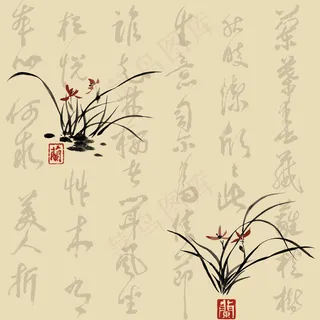 蘭葉春葳蕤桂華
秋皎潔欣欣此
生意自爾為佳節
誰知林棲者聞風坐
相悅草木有
本心何求美人折
蘭
蘭